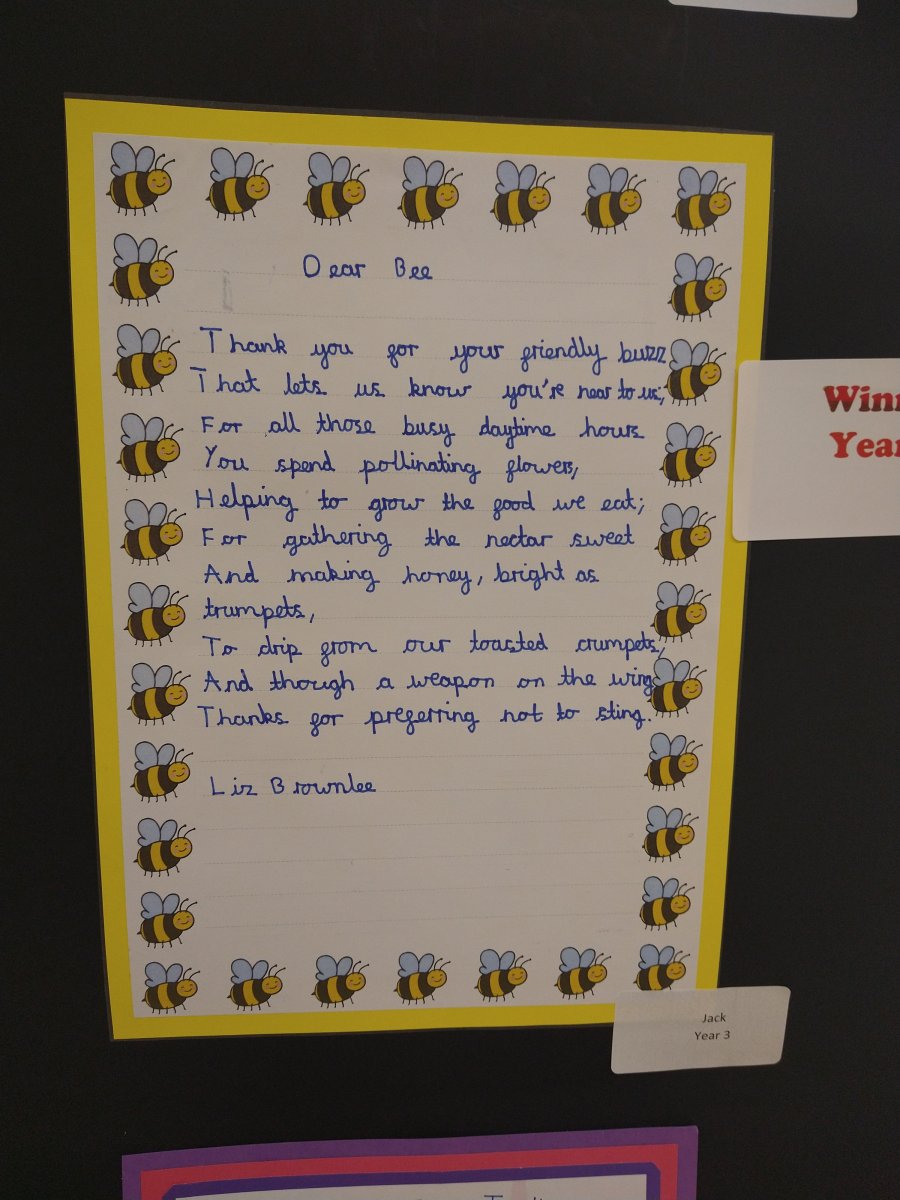 Dear Bee
Thank you for your friendly buzz
That lets us know you're near to us,
For all those busy daytime hours
You spend pollinating flowers,
Helping to grow the food we eat;
For gathering the nectar sweet
And making honey, bright as
trumpets,
To drip from our toasted crumpets,
And though a weapon on the wing
Thanks for preferring not to sting.
Liz Brownlee
Winn
Year
Jack
Year 3